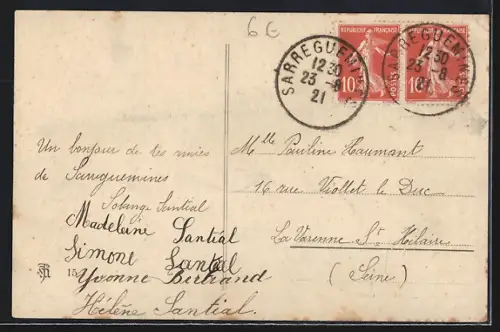 6 €
RÉPUBLIQUE FRANÇAISE
RÉPUBLIQUE FRANÇAISE
10
POSTES
10
SARREGUEMINES
12 30
23 - 8
21
SARREGUEMINES
12 30
23 - 8
21
Un bonjour de tes amies
de Sarreguemines
Solange Santial
Madeleine Santial
Simone Santial
Yvonne Bertrand
Hélène Santial.
15
Mlle Pauline Haumant
16 rue Viollet le Duc
La Varenne St Hilaire
(Seine)